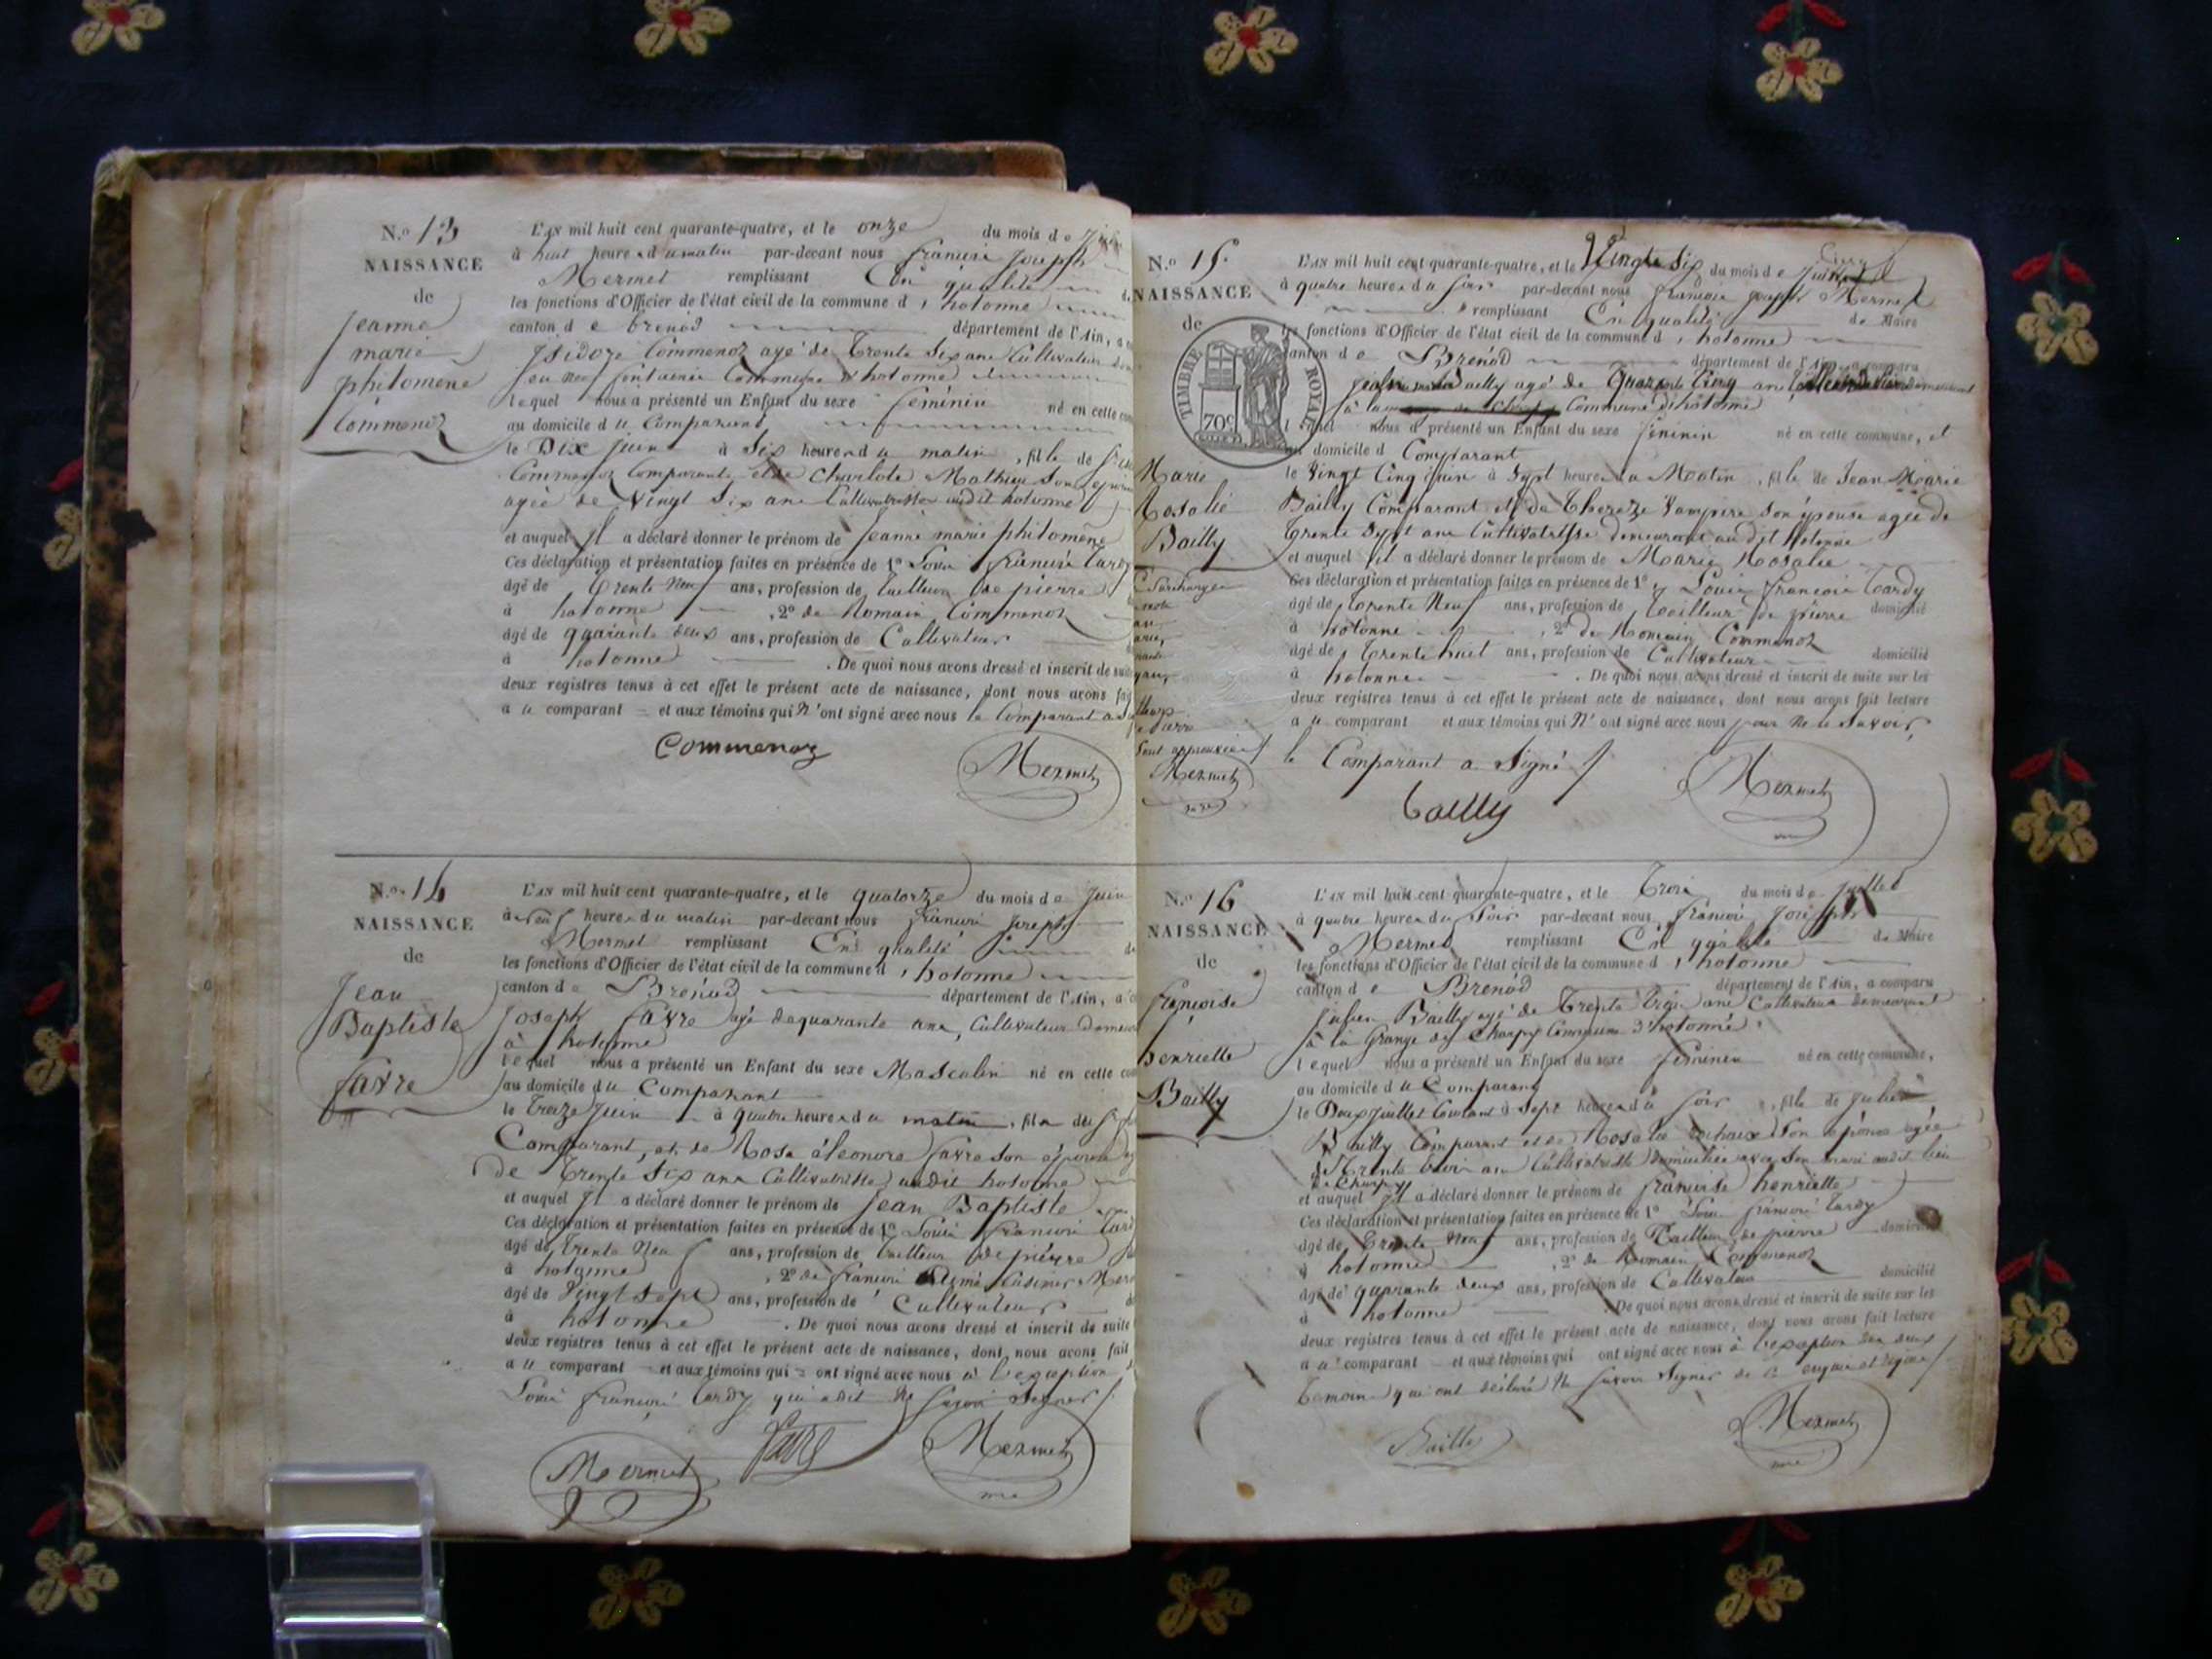 N.o 13
NAISSANCE
de
jeanne
marie
philomène
Commenoz
L'AN mil huit cent quarante-quatre, et le onze du mois de Juin
à huit heures du matin par-devant nous françois joseph
Mermet remplissant En qualité
les fonctions d'Officier de l'état civil de la commune d'hotonne
canton de brenod département de l'Ain, a
Isidore Commenoz agé de trente six ans Cultivateur
Commune d'hotonne
lequel nous a présenté un Enfant du sexe féminin né en cette
au domicile du Comparant
le Dix juin à Six heures du matin, fille de
Commenoz Comparant, et de Charlote Mathieu Son épouse
agée de Vingt Six ans Cultivatrice audit hotonne
et auquel Il a déclaré donner le prénom de jeanne marie philomène
Ces déclaration et présentation faites en présence de 1o Louis françois tardy
âgé de trente neuf ans, profession de tailleur de pierre
à hotonne , 2o de Romain Commenoz
âgé de quarante deux ans, profession de Cultivateur
à hotonne . De quoi nous avons dressé et inscrit de suite
deux registres tenus à cet effet le présent acte de naissance, dont nous avons fait
au comparant et aux témoins qui N'ont signé avec nous le Comparant a
Commenoz
Mermet
N.o 14
NAISSANCE
de
Jean
Baptiste
favre
L'AN mil huit cent quarante-quatre, et le quatorze du mois de Juin
à neuf heures du matin par-devant nous françois joseph
Mermet remplissant En qualité
les fonctions d'Officier de l'état civil de la commune d'hotonne
canton de Brenod département de l'Ain, a
Joseph favre agé de quarante ans, Cultivateur
à hotonne
lequel nous a présenté un Enfant du sexe Masculin né en cette
au domicile du Comparant
le treize juin à quatre heures du matin, fils de
Comparant, et de Rose éléonore favre son épouse
de trente six ans Cultivatrice audit hotonne
et auquel Il a déclaré donner le prénom de Jean Baptiste
Ces déclaration et présentation faites en présence de 1o Louis françois
âgé de trente Neuf ans, profession de tailleur de pierre
à hotonne , 2o de françois
âgé de Vingt Sept ans, profession de Cultivateur
à hotonne . De quoi nous avons dressé et inscrit de suite
deux registres tenus à cet effet le présent acte de naissance, dont nous avons fait
au comparant et aux témoins qui ont signé avec nous à l'exception
Louis françois tardy qui a dit Ne Savoir Signer
Mermet
favre
Mermet
N.o 15
NAISSANCE
de
TIMBRE ROYAL
70c
Marie
Rosalie
Bailly
Mermet
L'AN mil huit cent quarante-quatre, et le Vingt Six du mois de juin
à quatre heures du soir par-devant nous françois joseph Mermet
remplissant En qualité de Maire
les fonctions d'Officier de l'état civil de la commune d'hotonne
canton de Brenod département de l'Ain, a comparu
jean marie Bailly agé de Quarante Cinq ans
Commune d'hotonne
nous a présenté un Enfant du sexe féminin né en cette commune, et
domicile d Comparant
le Vingt Cinq juin à Sept heures du Matin, fille de Jean Marie
Bailly Comparant et de Thereze Vampire son épouse agée de
trente Sept ans Cultivatrisse demeurant au dit hotonne
et auquel il a déclaré donner le prénom de Marie Rosalie
Ces déclaration et présentation faites en présence de 1o Louis françois tardy
âgé de trente Neuf ans, profession de tailleur de pierre domicilié
à hotonne , 2o de Romain Commenoz
âgé de trente huit ans, profession de Cultivateur domicilié
à hotonne . De quoi nous avons dressé et inscrit de suite sur les
deux registres tenus à cet effet le présent acte de naissance, dont nous avons fait lecture
au comparant et aux témoins qui N'ont signé avec nous pour ne le savoir,
le Comparant a Signé
bailly
Mermet
N.o 16
NAISSANCE
de
françoise
henriette
Bailly
L'AN mil huit cent quarante-quatre, et le trois du mois de juillet
à quatre heures du Soir par-devant nous françois joseph
Mermet remplissant En qualité de Maire
les fonctions d'Officier de l'état civil de la commune d'hotonne
canton de Brenod département de l'Ain, a comparu
julien Bailly agé de trente trois ans Cultivateur demeurant
à la Grange de Champy Commune d'hotonne
lequel nous a présenté un Enfant du sexe féminin né en cette commune,
au domicile du Comparant
le Deux juillet Courant à Sept heures du soir, fille de julien
Bailly Comparant et de Rosalie Son épouse agée
de trente trois ans Cultivatrisse domiciliée avec Son mari audit lieu
de Champy
et auquel Il a déclaré donner le prénom de françoise henriette
Ces déclaration et présentation faites en présence de 1o Louis françois tardy
âgé de trente Neuf ans, profession de tailleur de pierre domicilié
à hotonne , 2o de Romain Commenoz
âgé de quarante deux ans, profession de Cultivateur domicilié
à hotonne . De quoi nous avons dressé et inscrit de suite sur les
deux registres tenus à cet effet le présent acte de naissance, dont nous avons fait lecture
au comparant et aux témoins qui ont signé avec nous à l'exception des deux
témoins qui ont déclaré Ne Savoir Signer de ce enquis et requis
Bailly
Mermet